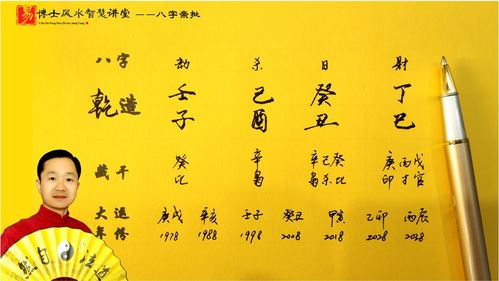 博士风水智慧讲堂 ——八字亲批
八字 劫 杀 日 财
乾造 壬 己 癸 丁
子 酉 丑 巳
藏干 癸 辛 辛己癸 庚丙戊
比 枭 枭杀比 印才官
大运 庚戌 辛亥 壬子 癸丑 甲寅 乙卯 丙辰
年份 1978 1988 1998 2008 2018 2028 2038
然自法道